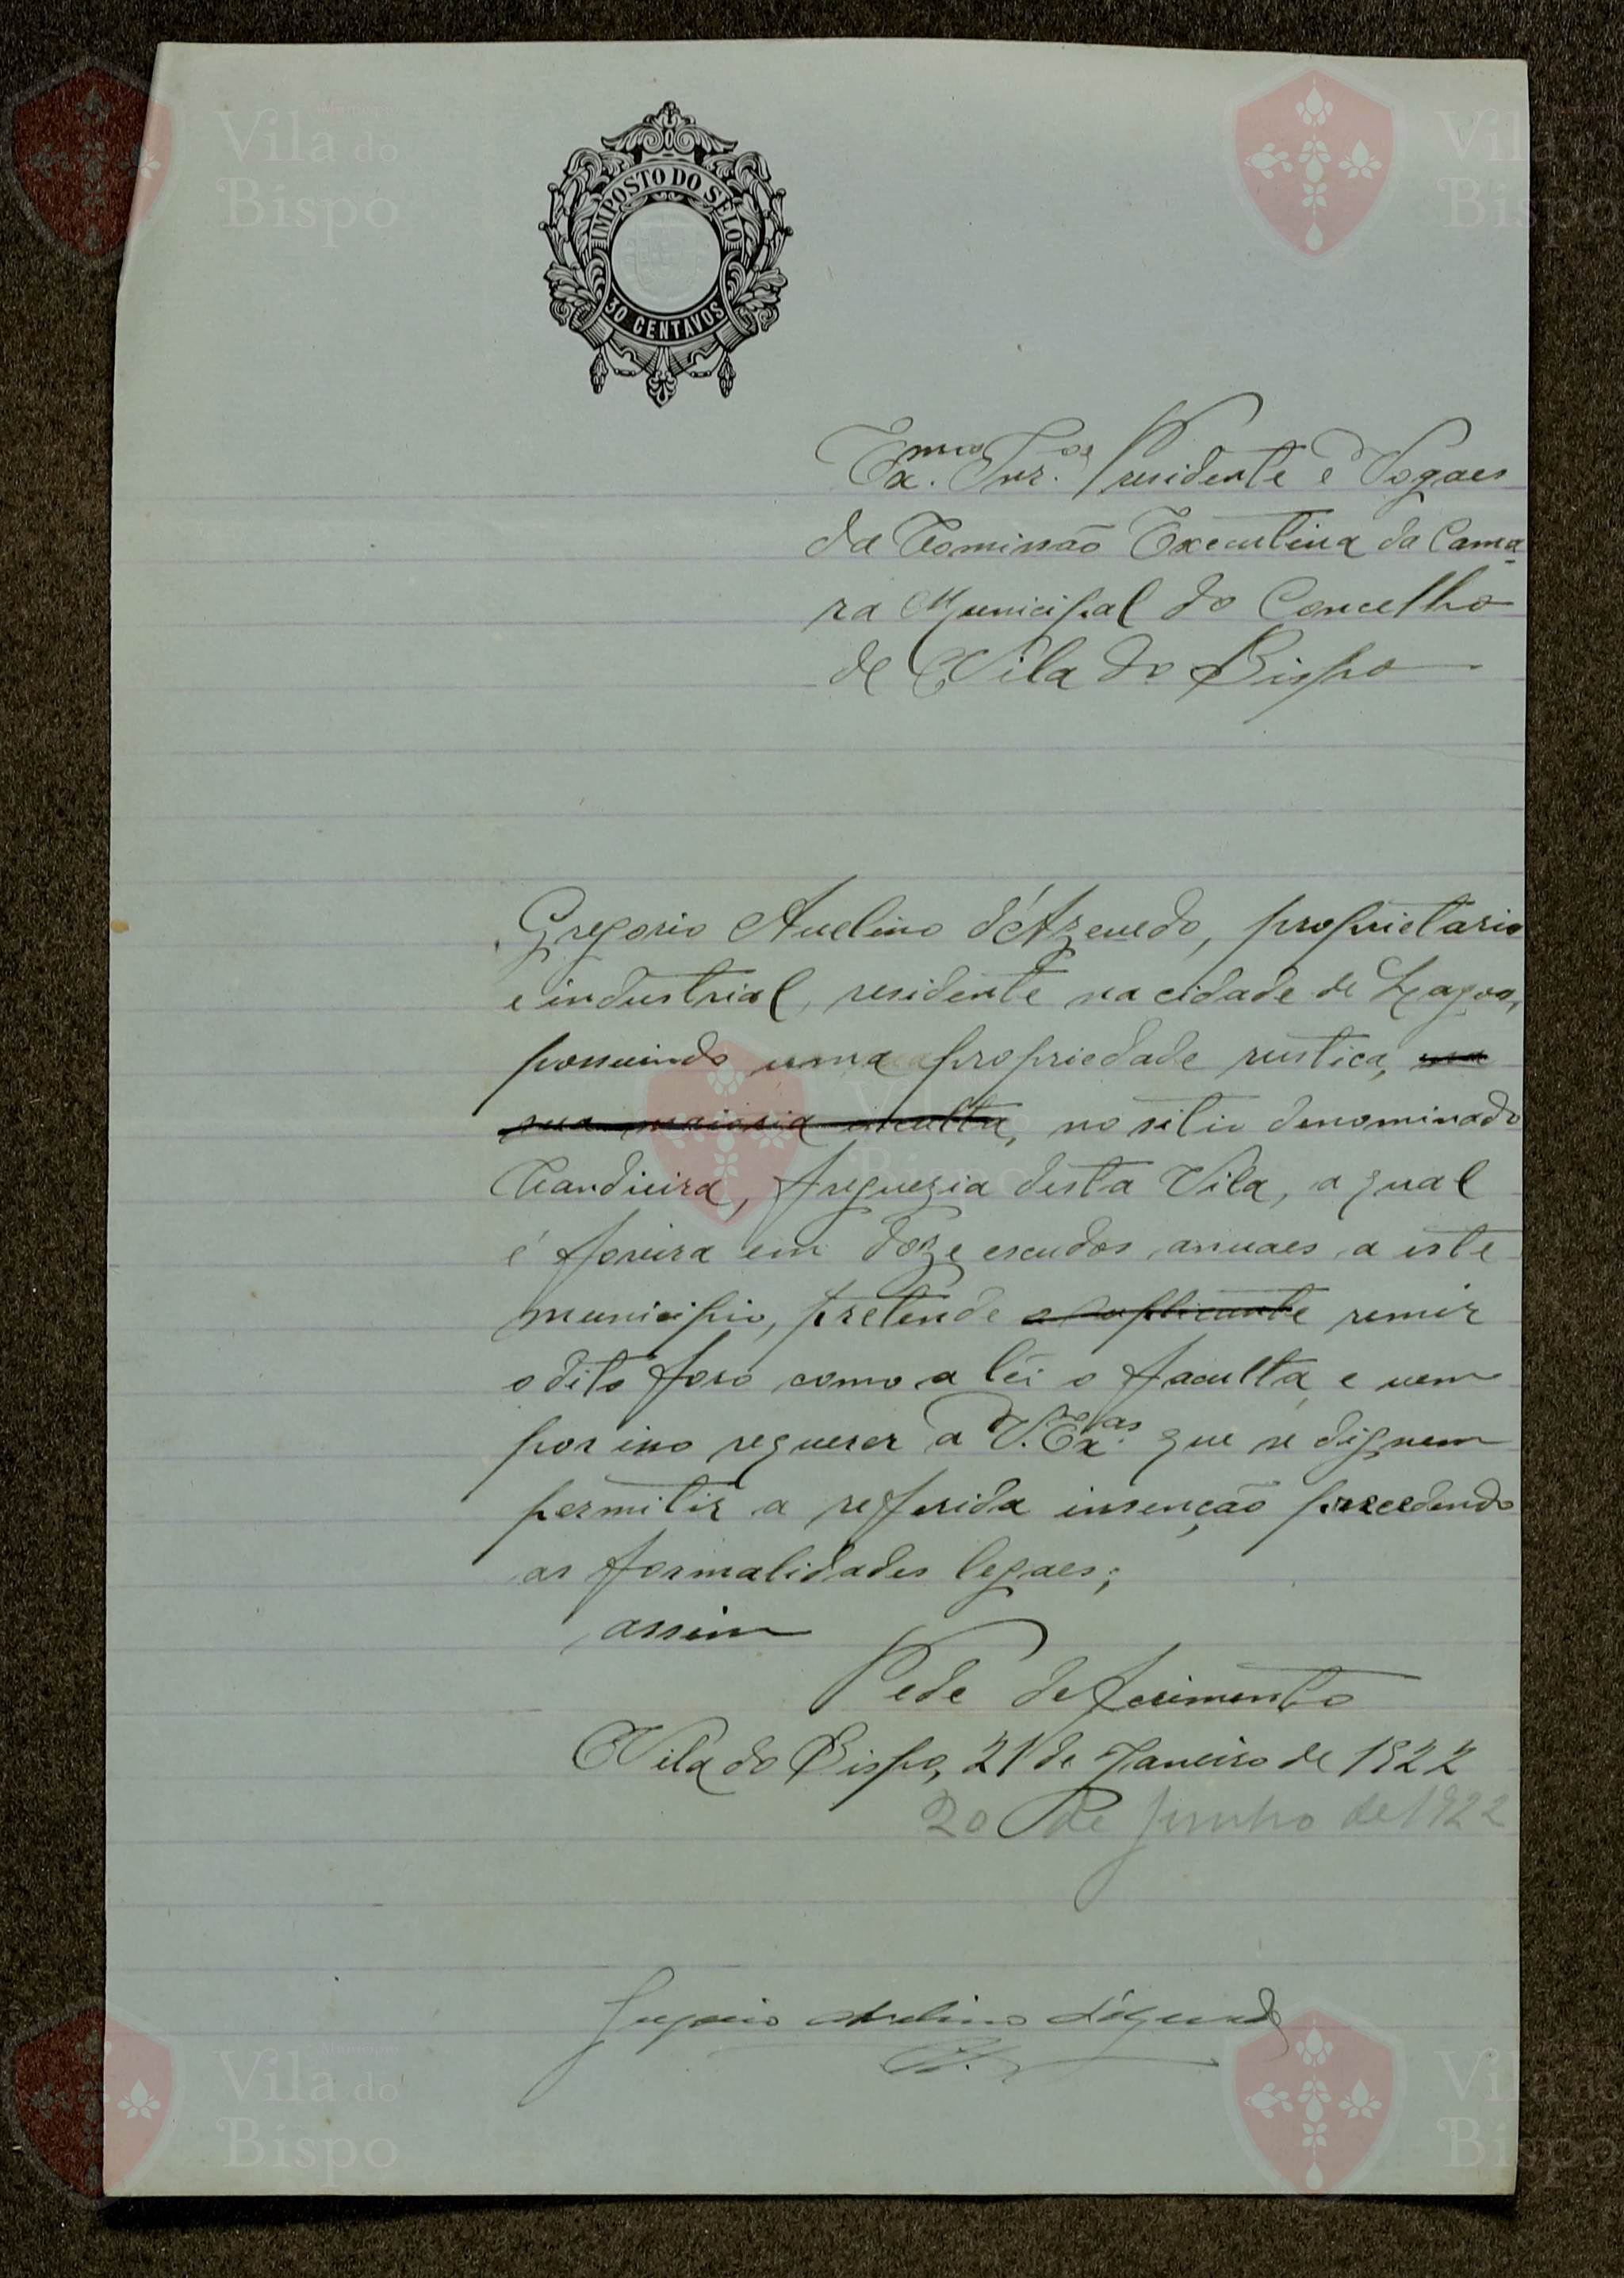 IMPOSTO DO SELO
30 CENTAVOS
Ex.mos Snr.es Presidente e Vogaes
da Comissão Executiva da Cama-
ra Municipal do Concelho
de Vila do Bispo
Gregorio Avelino d'Azevedo, proprietario
e industrial, residente na cidade de Lagos,
possuindo uma propriedade rustica, na
sua maioria inculta, no sitio denominado
Candieira, freguezia desta Vila, a qual
é foreira em doze escudos anuaes a este
municipio, pretende o suplicante remir
o dito foro como a léi o faculta, e vem
por isso requerer a V. Ex.as que se dignem
permitir a referida insenção precedendo
as formalidades legaes;
assim
Pede deferimento
Vila do Bispo, 21 de Janeiro de 1922
20 de Junho de 1922
Gregorio Avelino d'Azevedo
Município
Vila do
Bispo
Vila do
Bispo
Município
Vila do
Bispo